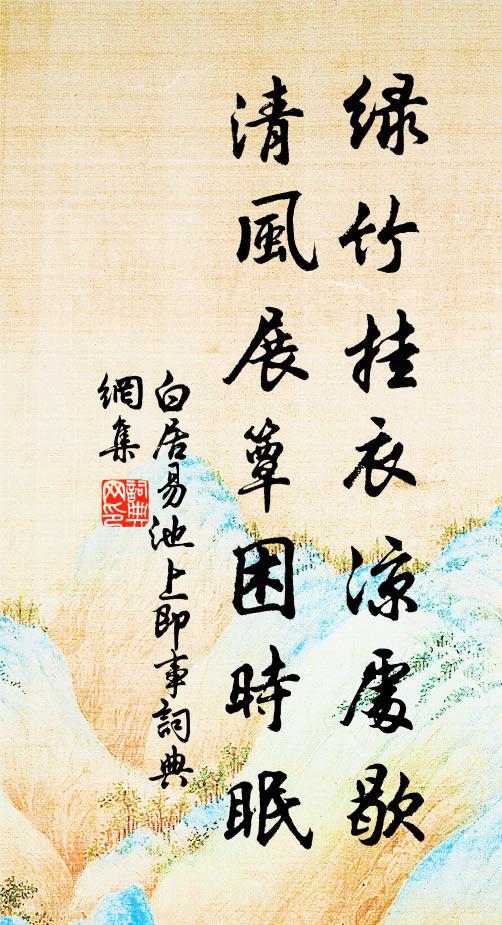 绿竹挂衣凉處歇
清風展簟困時眠
白居易池上即事詞典
網集
詞典
网印